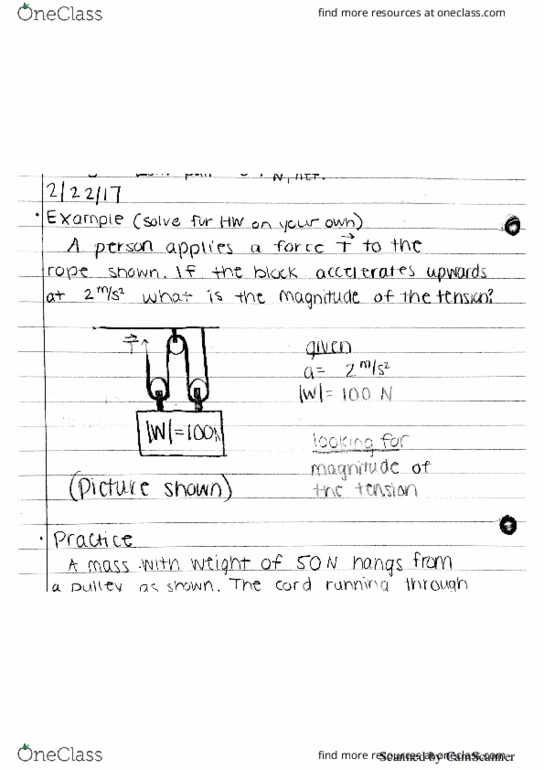 OneClass
find more resources at oneclass.com
2/22/17
• Example (solve for HW on your own)
A person applies a force T to the
rope shown. If the block accelerates upwards
at 2 m/s² what is the magnitude of the tension?
T
given
a= 2 m/s²
|W|= 100 N
|W|=100N
looking for
magnitude of
the tension
(Picture shown)
• Practice
A mass with weight of 50N hangs from
a pulley as shown. The cord running through
OneClass
find more resources at oneclass.com
Scanned by CamScanner